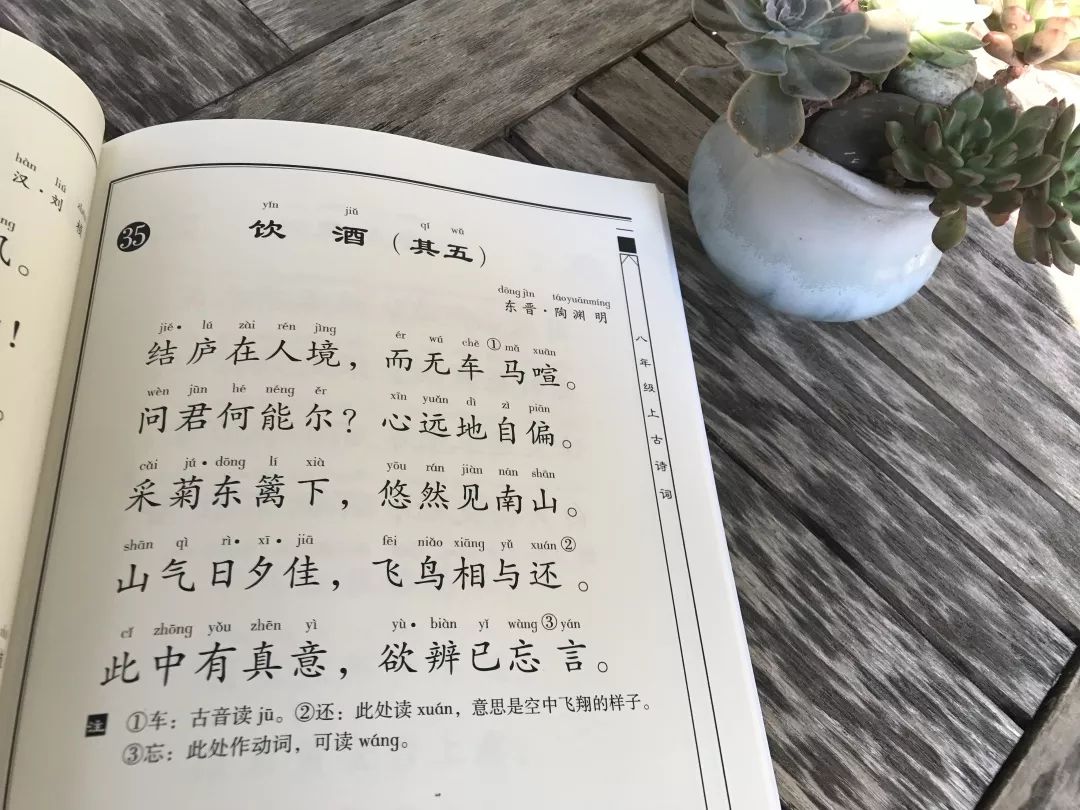 hàn liú
汉·刘
。
！
。
35
yǐn jiǔ qí wǔ
饮 酒（其五）
dōng jìn táo yuān míng
东晋·陶渊明
jié• lú zài rén jìng ér wú chē ① mǎ xuān
结庐在人境，而无车马喧。
wèn jūn hé néng ěr xīn yuǎn dì zì piān
问君何能尔？心远地自偏。
cǎi jú• dōng lí xià yōu rán jiàn nán shān
采菊东篱下，悠然见南山。
shān qì rì• xī• jiā fēi niǎo xiāng yǔ xuán ②
山气日夕佳，飞鸟相与还。
cǐ zhōng yǒu zhēn yì yù• biàn yǐ wàng ③ yán
此中有真意，欲辨已忘言。
注 ①车：古音读 jū。②还：此处读 xuán，意思是空中飞翔的样子。
③忘：此处作动词，可读 wáng。
八年级上古诗词